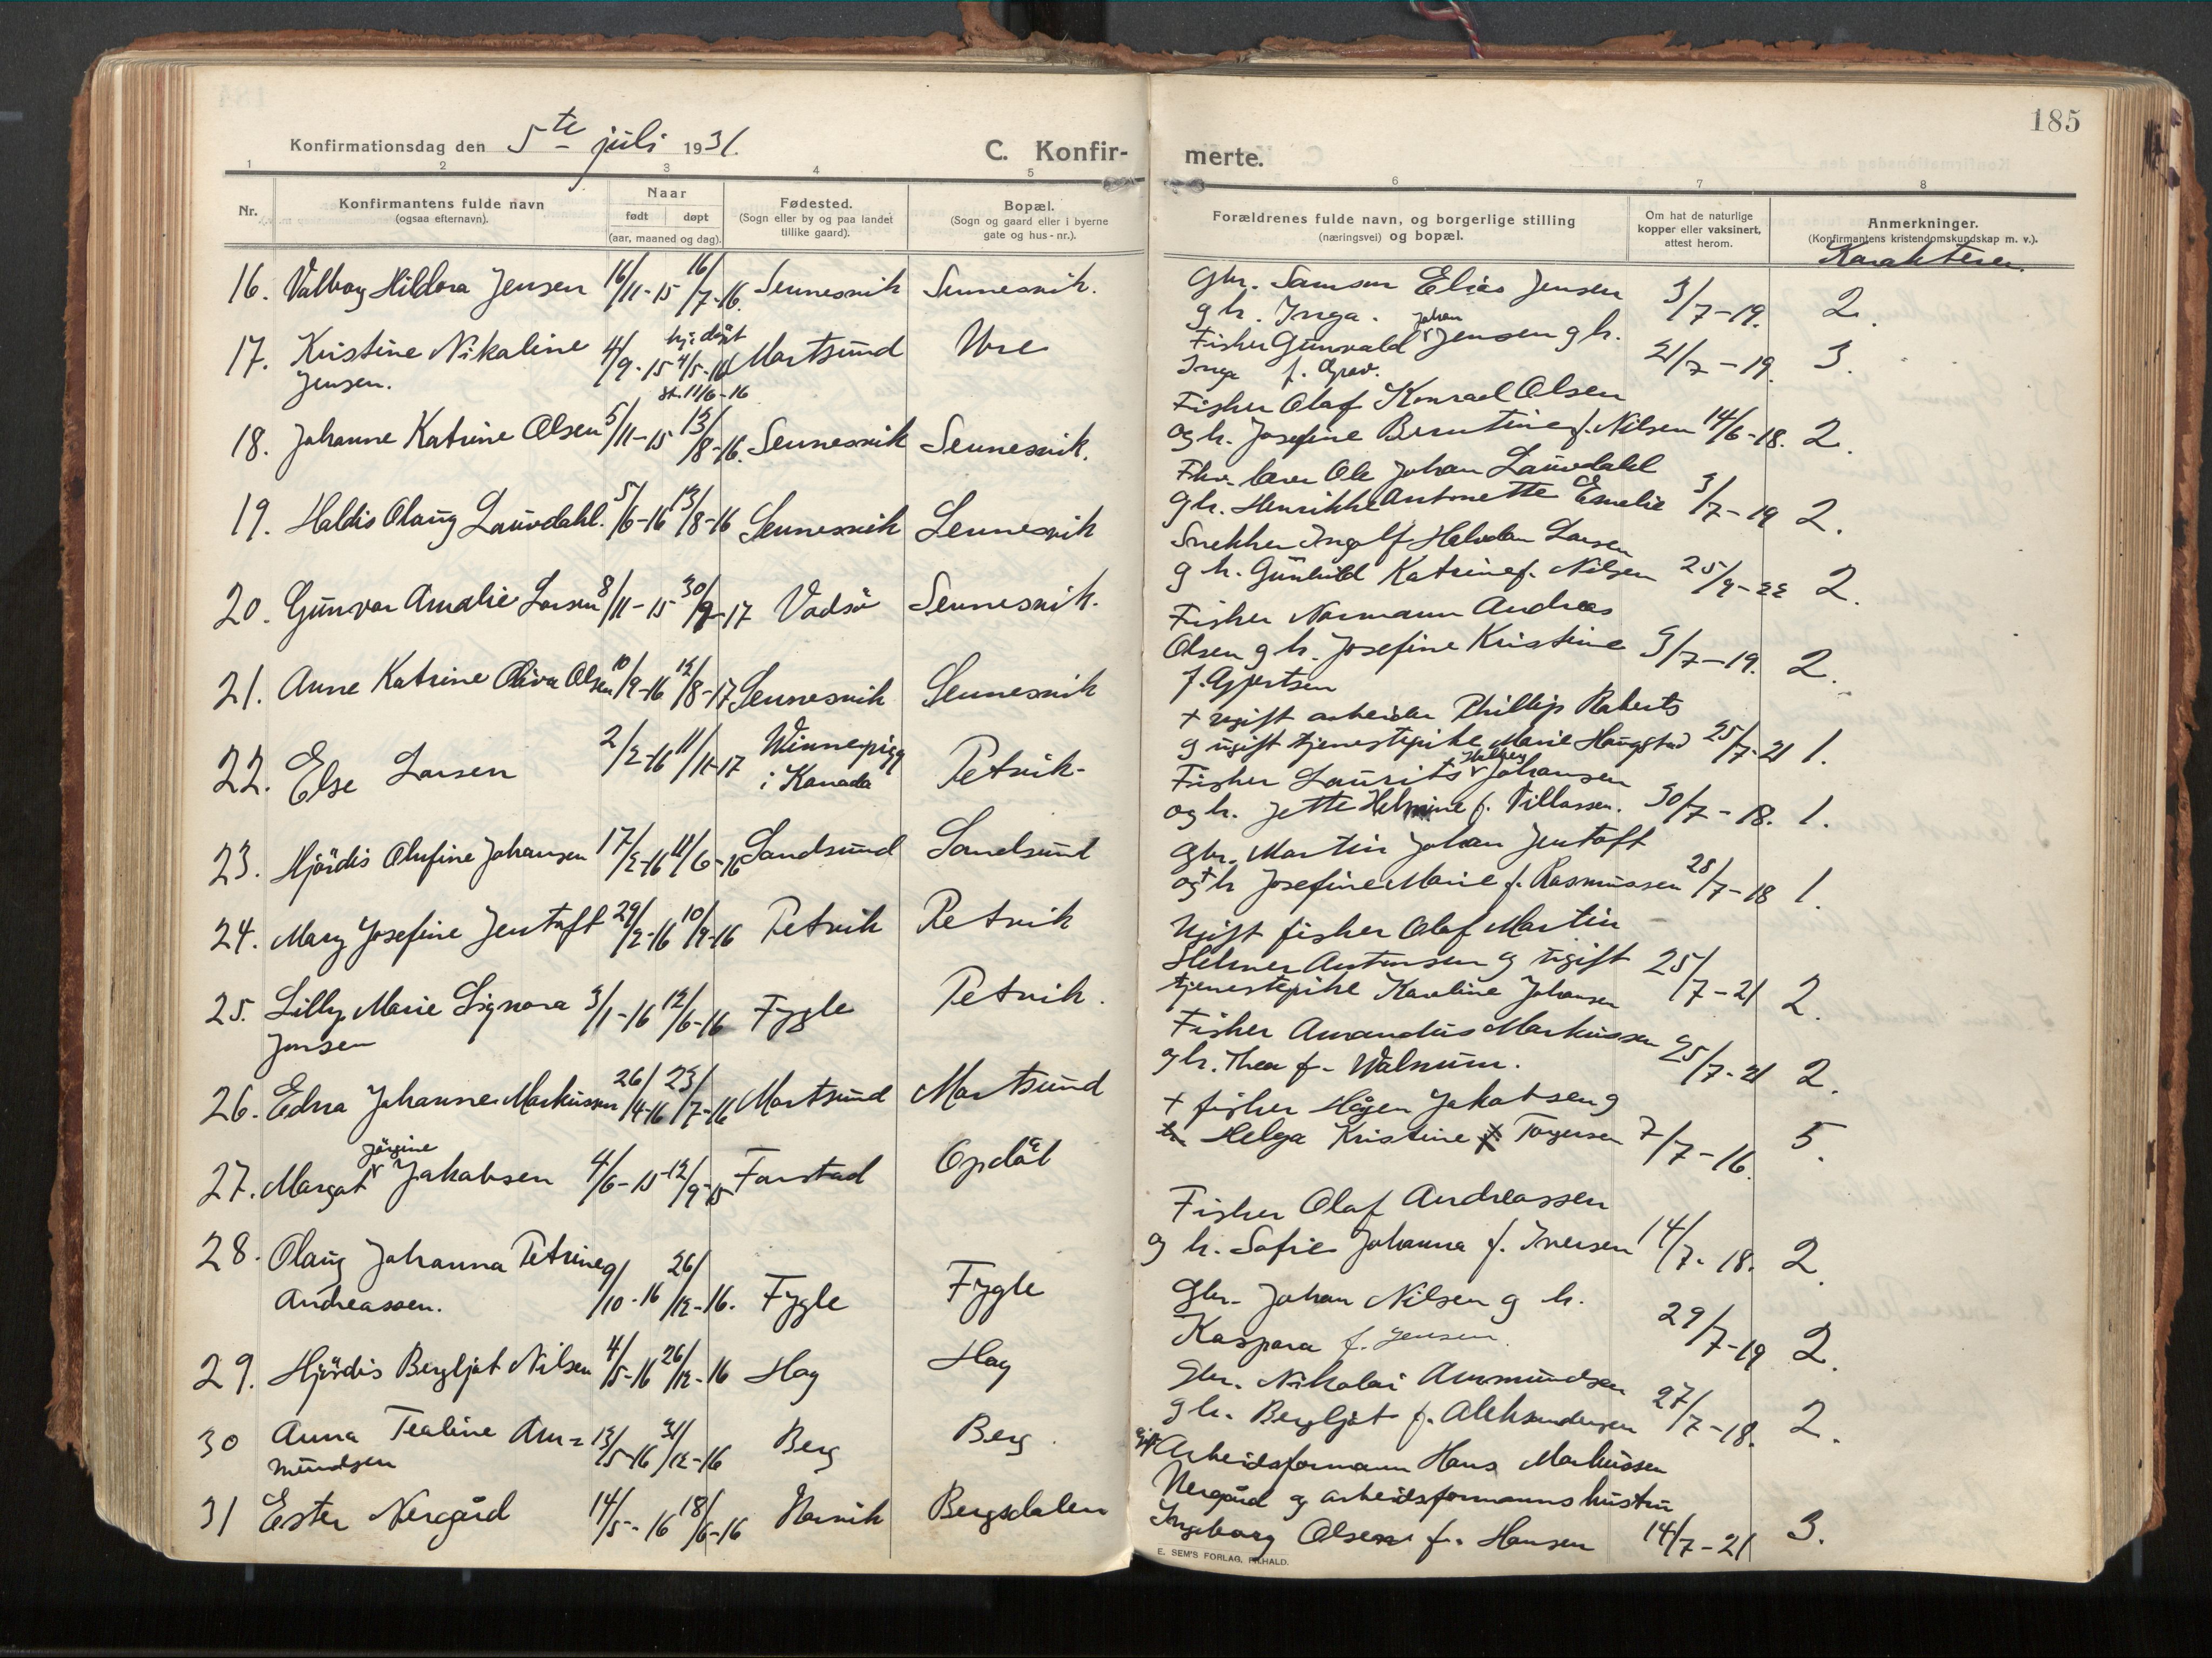 185
Konfirmationsdag den 5te juli 1931.
C. Konfir-
merte.
1 2 3 4 5 6 7 8
Nr.
Konfirmantens fulde navn
(ogsaa efternavn).
Naar
født døpt
(aar, maaned og dag).
Fødested.
(Sogn eller by og paa landet
tillike gaard).
Bopæl.
(Sogn og gaard eller i byerne
gate og hus-nr.).
Forældrenes fulde navn, og borgerlige stilling
(næringsvei) og bopæl.
Om hat de naturlige
kopper eller vaksinert,
attest herom.
Anmerkninger.
(Konfirmantens kristendomskundskap m. v.).
Karakterer.
16. Valborg Hildora Jensen 16/11-15 16/7-16. Sennesvik Sennesvik.
Gbr. Samson Elias Jensen
g h. Inga. 3/7-19. 2.
17. Kristine Nikaline 4/9-15 hj: døpt 4/5-16 Mortsund Ure
Jensen. st. 11/6-16
Johan
Fisker Gunvald Jensen g h.
Inga f. Grav. 21/7-19. 3.
18. Johanne Katrine Olsen 5/11-15 13/8-16. Sennesvik Sennesvik.
Fisker Olaf Konrad Olsen
og h. Josefine Berntine f. Nilsen 14/6-18. 2.
19. Haldis Olaug Lauvdahl. 5/6-16 13/8-16 Sennesvik Sennesvik
Fhv. lærer Ole Johan Lauvdahl
g h. Henrikke Antonette Emelie 3/7-19 2.
20. Gunvor Amalie Larsen 8/11-15 30/9-17 Vadsö Sennesvik.
Snekker Ingolf Halvdan Larsen
g h. Gunhild Katrine f. Nilsen 25/9-22 2.
21. Anne Katrine Oliva Olsen 10/9-16 12/8-17 Sennesvik Sennesvik
Fisker Normann Andreas
Olsen g h. Josefine Kristine 3/7-19. 2.
f. Gjertsen
22. Else Larsen 2/2-16 11/11-17 Winnepigg Petvik-
i Kanada
+ ugift arbeider Phillip Roberts
g ugift tjenestepike Marie Haugstad 25/7-21 1.
23. Hjördis Olufine Johansen 17/2-16 11/6-16 Sandsund Sandsund
Fisker Laurits Johansen
og h. Jette Helmine f. Villassen. 30/7-18. 1.
24. Mary Josefine Jentoft 29/2-16 10/9-16 Petvik Petvik
Gbr. Martin Johan Jentoft
og + h Josefine Marie f. Rasmussen 28/7-18 1.
25. Lilly Marie Signora 3/1-16 12/6-16 Fygle Petvik.
Jensen
Ugift fisker Olaf Martin
Helmer Antonsen g ugift 25/7-21 2.
tjenestepike Karoline Johansen
26. Edna Johanne Markussen 26/4-16 23/7-16 Mortsund Mortsund
Fisker Amandus Markussen
g h. Thea f. Walnum. 25/7-21 2.
Jörgine
27. Margot Jakobsen 4/6-15 12/9-15 Farstad Opdöl
+ fisker Hågen Jakobsen g
Helga Kristine Torgersen 7/7-16. 5.
28. Olaug Johanna Petrine 9/10-16 26/12-16. Fygle Fygle
Andreassen.
Fisker Olaf Andreassen
g h. Sofie Johanna f. Iversen 14/7-18. 2.
29. Hjördis Bergljot Nilsen 4/5-16 26/12-16 Hag Hag
Gbr. Johan Nilsen g h.
Kaspara f. Jensen. 29/7-19 2.
30 Anna Tealine Am= 13/5-16 31/12-16 Berg Berg.
mundsen
Gbr. Nikolai Ammundsen
g h. Bergljot f. Aleksandersen 27/7-18. 2.
31 Ester Nergård 14/5-16 18/6-16 Narvik Bergsdalen
gift Arbeidsformann Hans Markussen
Nergård g arbeidsformanns hustru
Ingeborg Olsen f. Hansen 14/7-21 3.
E. SEM'S FORLAG, F.HALD.